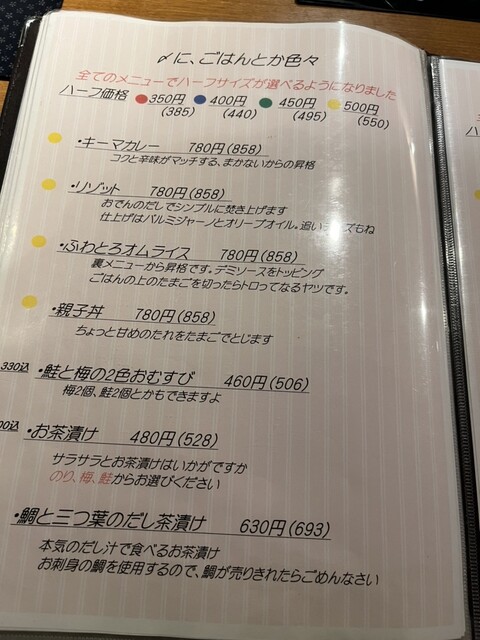 〆に、ごはんとか色々
全てのメニューでハーフサイズが選べるようになりました
ハーフ価格 350円 400円 450円 500円
(385) (440) (495) (550)
・キーマカレー 780円(858)
コクと辛味がマッチする、まかないからの昇格
・リゾット 780円(858)
おでんのだしでシンプルに焚き上げます
仕上げはパルミジャーノとオリーブオイル。追いチーズもね
・ふわとろオムライス 780円(858)
裏メニューから昇格です。デミソースをトッピング
ごはんの上のたまごを切ったらトロってなるヤツです。
・親子丼 780円(858)
ちょっと甘めのたれをたまごでとじます
330込 ・鮭と梅の2色おむすび 460円(506)
梅2個、鮭2個とかもできますよ
00込 ・お茶漬け 480円(528)
サラサラとお茶漬けはいかがですか
のり、梅、鮭からお選びください
・鯛と三つ葉のだし茶漬け 630円(693)
本気のだし汁で食べるお茶漬け
お刺身の鯛を使用するので、鯛が売りきれたらごめんなさい